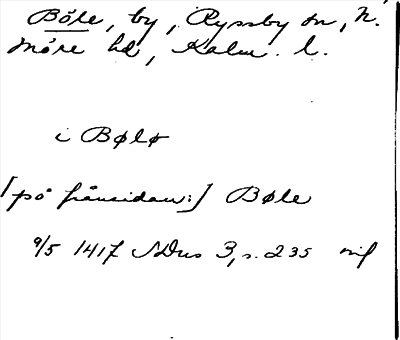 Böle, by, Ryssby sn, N.
Möre hd, Kalm. l.
i Bølø
[på frånsidan:] Bøle
9/5 1417 SDns 3, s. 235 mf